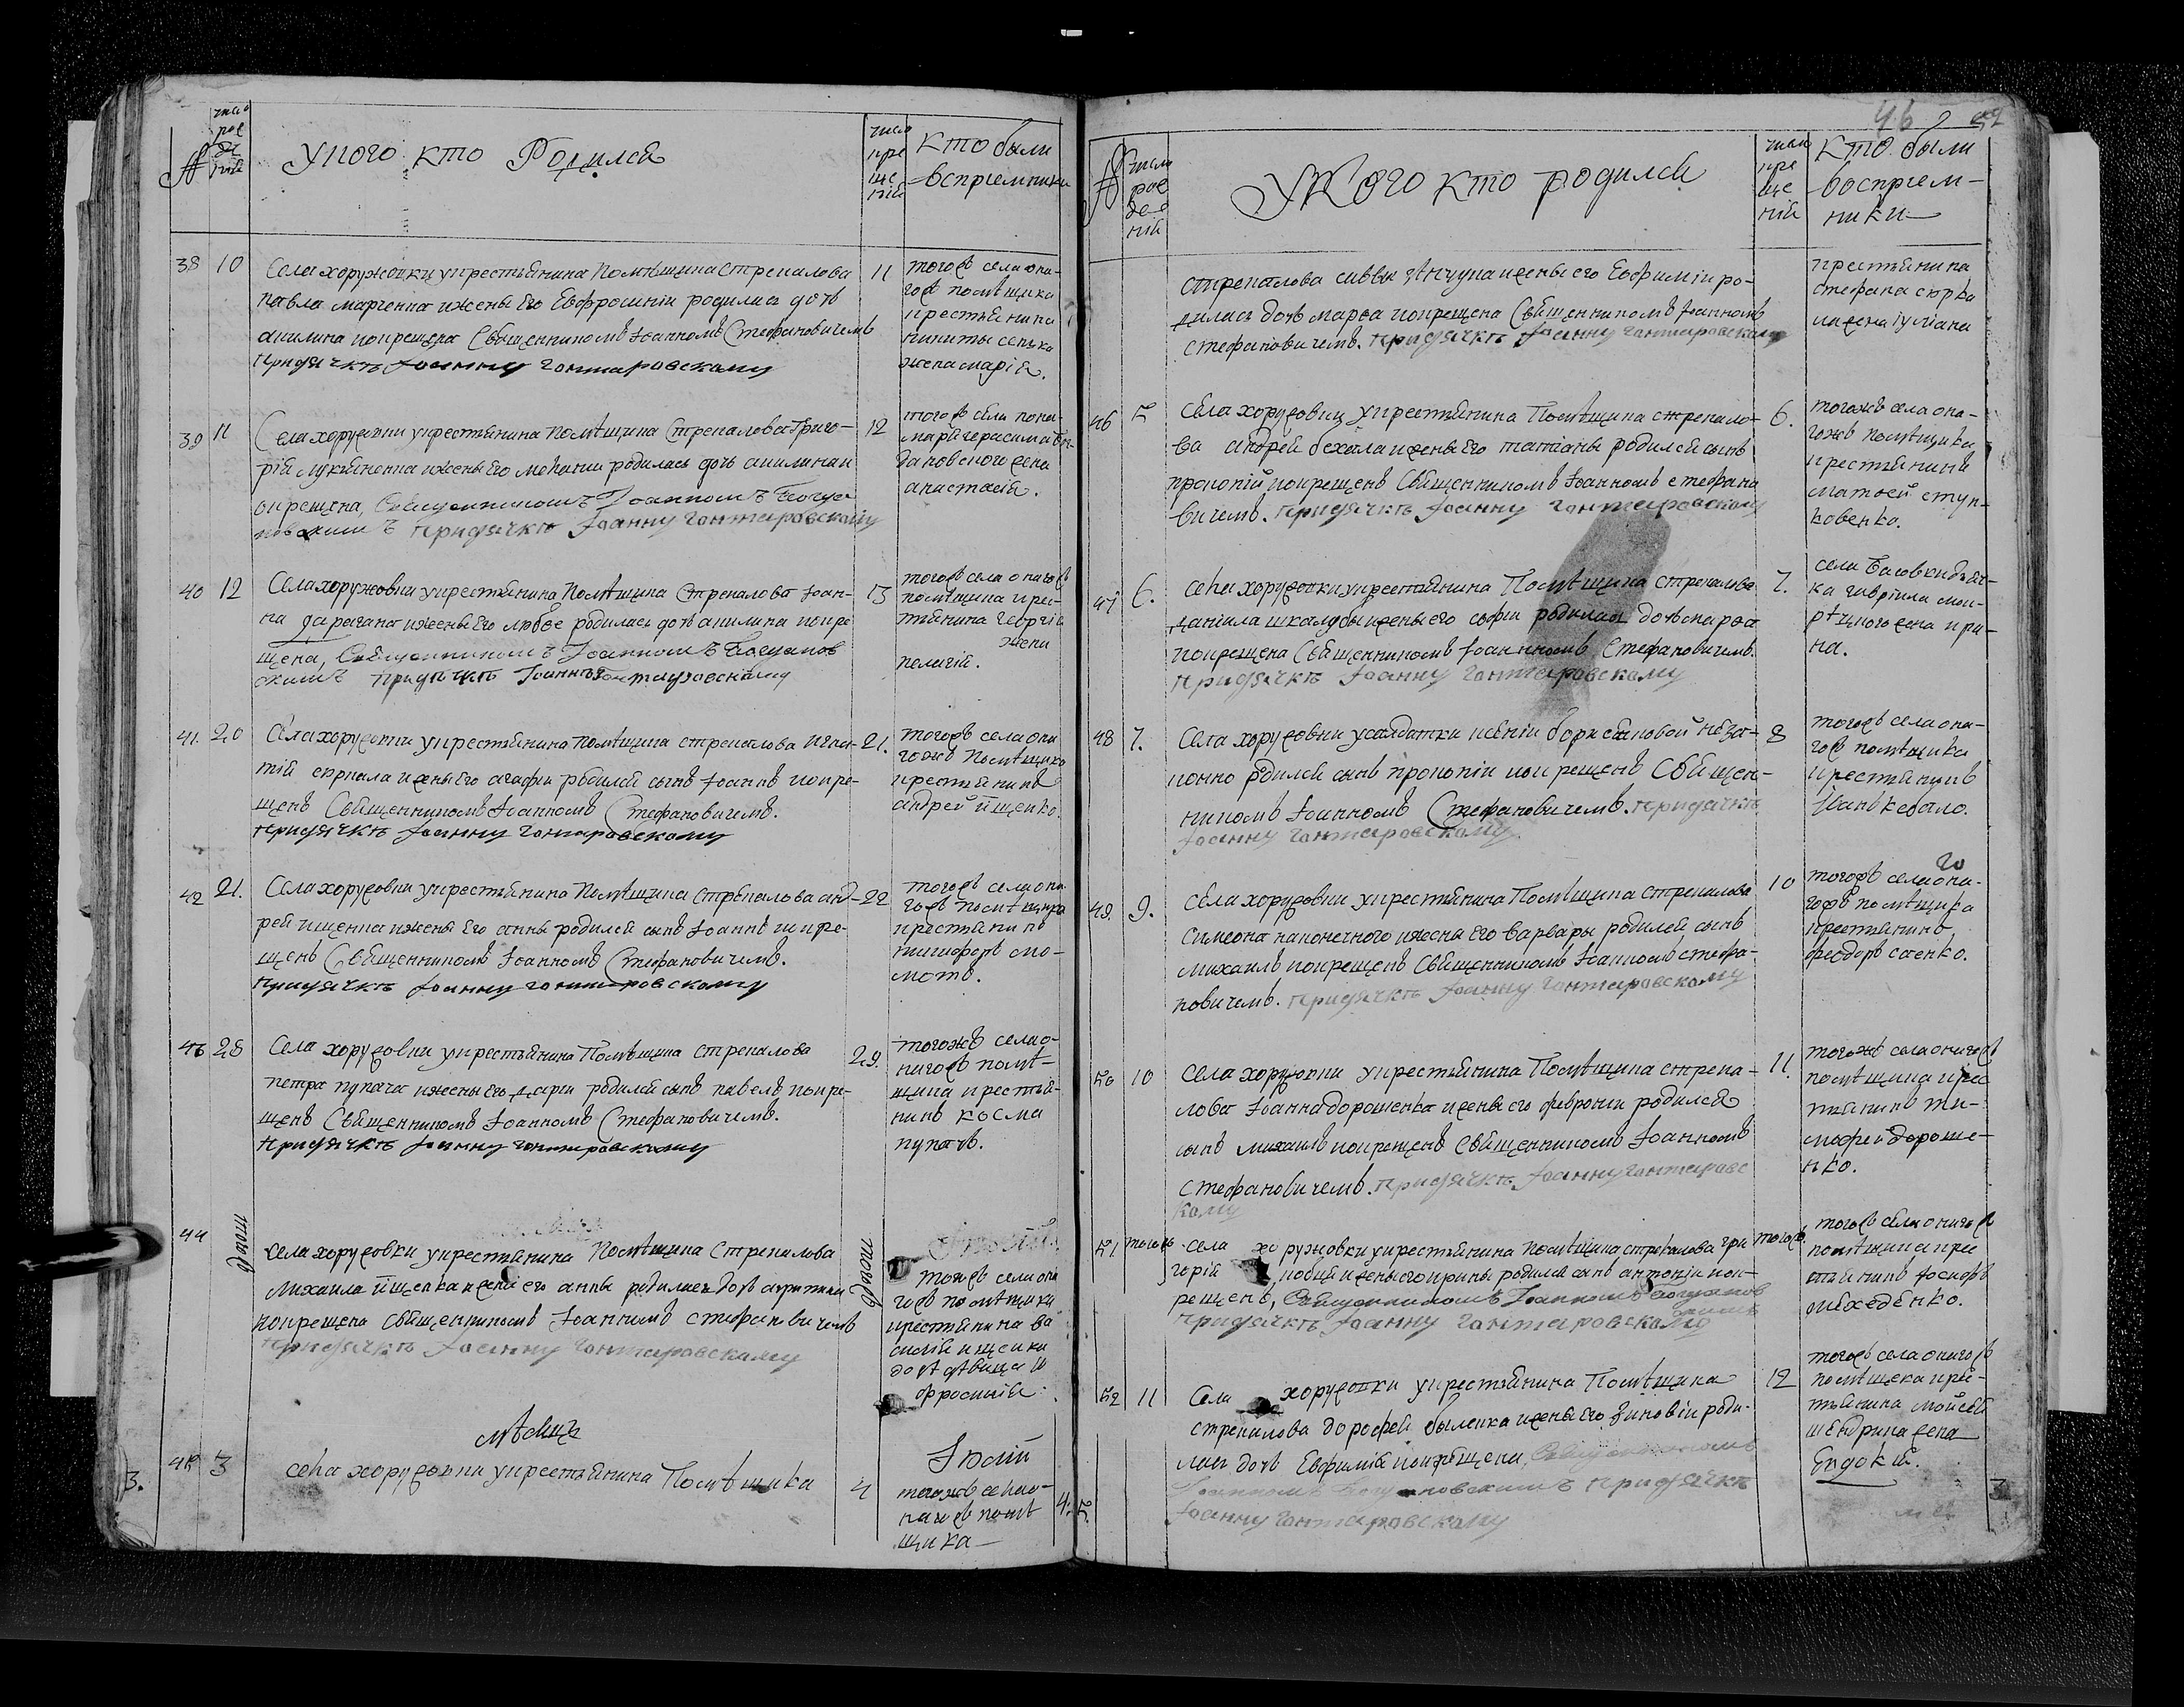 число
рож
де
ній
У кого кто Родился
число
кре
ще
ній
кто были
воспріемники
38 10
Села хоружовки у крестьянина Помѣщика Стрекалова
павла марченка и жены Его Евфросиніи родилась дочь
акилина и крещена Священникомъ Іоанномъ Стефановичемъ
При дячкѣ Іоанну Гонтаровскому
11
тогожъ села она-
гожъ помѣщика
крестьянина
никиты сенька
жена марія.
39 11
Села хоружовки у крестьянина Помѣщика Стрекалова Григо-
рій лукьяненка и жены Его родилась дочь акилина и
окрещена, Священникомъ Іоанномъ Богда
новскимъ При дячкѣ Іоанну Гонтаровскому
12
тогожъ села пона-
марй герасима Бог-
дановского жена
анастасія.
40 12
Села хоружовки у крестьянина Помѣщика Стрекалова Іоан-
на дарагана и жены Его любве родилась дочь акилина и кре
щена, Священникомъ Іоанномъ Богданов
скимъ При дячкѣ Іоанну Гонтаровскому
13
тогожъ села оногожъ
помѣщика кре-
тьянина георгія
жена
пелагія.
41. 20
Села хоружовки у крестьянина Помѣщика стрекалова Игна-
тій и жены Его агафіи родился сынъ Іоаннъ и кре-
щенъ Священникомъ Іоанномъ Стефановичемъ.
При дячкѣ Іоанну Гонтаровскому
21.
тогожъ села она
гожъ Помѣщика
крестьянинъ
андрей йщенко.
42 21.
Села хоружовки у крестьянина Помѣщика Стрекалова анд-
рей ищенка и жены Его анны родился сынъ Іоаннъ и кре-
щенъ Священникомъ Іоанномъ Стефановичемъ.
При дячкѣ Іоанну Гонтаровскому
22
тогожъ села она
гожъ помѣщика
крестьянинъ
никифоръ мо-
мотъ.
43 28
Села хоружовки у крестьянина Помѣщика стрекалова
петра пугача и жены Его даріи родился сынъ павелъ и кре-
щенъ Священникомъ Іоанномъ Стефановичемъ.
При дячкѣ Іоанну Гонтаровскому
29.
тогожъ села о-
ногожъ помѣ-
щика крестья-
нинъ косма
пугачъ.
44 тогожъ
Села хоружовки у крестьянина Помѣщика Стрекалова
Михаила йщенка и жены его анны родилась дочь
и крещена Священникомъ Іоанномъ Стефановичемъ
При дячкѣ Іоанну Гонтаровскому
тогожъ
тожъ села она
гожъ помѣщика
крестьянина ва
силій ищенка
дочь дѣвица Е
фросинія.
мѣсяцъ
Іюлій
45 3
села хоружовки у крестьянина Помѣщика
4
тогожъ села о-
ногожъ помѣ
щика
3.
4.
46
число
рож
де
ній
У Кого кто родился
число
кре
ще
ній
Кто были
воспріем-
ники
стрекалова саввы и жены его Евфиміи ро-
дилась дочь марѳа и крещена Священникомъ Іоанномъ
стефановичемъ. При дячкѣ Іоанну Гонтаровскому
крестьянина
стефана сюрка
жена іуліана
46 5
Села хоружовки у крестьянина Помѣщика стрекало-
ва андрей бехала и жены Его татіаны родился сынъ
прокопій и крещенъ Священникомъ Іоанномъ стефано
вичемъ. При дячкѣ Іоанну Гонтаровскому
6.
тогожъ села она-
гожъ помѣщика
крестьянинъ
матвей ступ-
ковенко.
47 6.
Села хоружовки у крестьянина Помѣщика стрекалова
даніила шкалубы и жены его софіи родилась дочь марѳа
и крещена Священникомъ Іоанномъ Стефановичемъ.
При дячкѣ Іоанну Гонтаровскому
7.
гавріила
жена ири-
на.
48 7.
Села хоружовки у салдатки ксеніи борисановой неза-
конно родился сынъ прокопій и крещенъ Священ-
никомъ Іоанномъ Стефановичемъ. При дячкѣ
Іоанну Гонтаровскому.
8
тогожъ села она-
гожъ помѣщика
крестьянинъ
іванъ кебало.
49. 9.
Села хоружовки у крестьянина Помѣщика стрекалова
Симеона наконечного и жены Его варвары родился сынъ
михаилъ и крещенъ Священникомъ Іоанномъ стефа-
новичемъ. При дячкѣ Іоанну Гонтаровскому
10
тогожъ села она-
гожъ помѣщика
крестьянинъ
феодоръ саенко.
50 10
Села хоружовки у крестьянина Помѣщика стрека-
лова Іоанна дорошенка и жены его февроніи родился
сынъ михаилъ и крещенъ Священникомъ Іоанномъ
Стефановичемъ. При дячкѣ Іоанну Гонтаровс
кому
11.
тогожъ села оногожъ
помѣщика крес
тьянинъ ти-
мофей дороше-
нко.
51 тогожъ
села хоружовки у крестьянина Помѣщика стрекалова гри
горій и жены его ирины родился сынъ антоній и кк-
рещенъ, Священникомъ Іоанномъ Богданов
скимъ
При дячкѣ Іоанну Гонтаровскому
тогожъ
тогожъ села оногожъ
помѣщика кре
стьянинъ Іосифъ
мехеденко.
52 11
Села хоружовки у крестьянина Помѣщика
стрекалова дорофей быленка и жены Его зиновіи роди-
лась дочь Евфимія и крещена, Священникомъ
Іоанномъ Богдановскимъ При дячкѣ
Іоанну Гонтаровскому
12
тогожъ села оногожъ
помѣщека кре-
тьянина мойсей
шендрика жена
Евдокія.
3